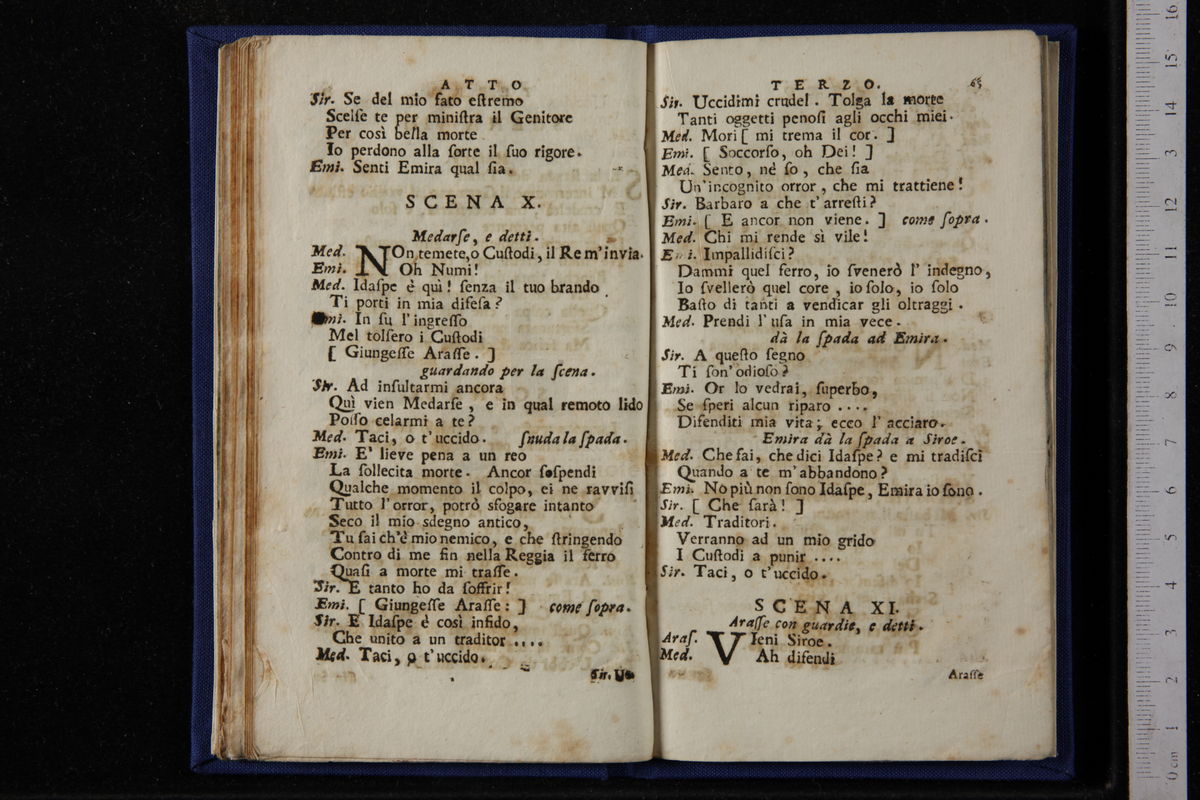 ATTO
Sir. Se del mio fato eſtremo
Scelſe te per miniſtra il Genitore
Per così bella morte
Io perdono alla ſorte il ſuo rigore.
Emi. Senti Emira qual ſia.
SCENA X.
Medarſe, e detti.
Med. NOn temete, o Cuſtodi, il Re m'invia.
Emi. Oh Numi!
Med. Idaſpe è quì! ſenza il tuo brando
Ti porti in mia difeſa?
Emi. In ſu l'ingreſſo
Mel tolſero i Cuſtodi
[ Giungeſſe Araſſe. ]
guardando per la ſcena.
Sir. Ad inſultarmi ancora
Quì vien Medarſe, e in qual remoto lido
Poſſo celarmi a te?
Med. Taci, o t'uccido. ſnuda la ſpada.
Emi. E' lieve pena a un reo
La ſollecita morte. Ancor ſoſpendi
Qualche momento il colpo, ei ne ravviſi
Tutto l'orror, potrò sfogare intanto
Seco il mio sdegno antico,
Tu ſai ch'è mio nemico, e che ſtringendo
Contro di me fin nella Reggia il ferro
Quaſi a morte mi traſſe.
Sir. E tanto ho da ſoffrir!
Emi. [ Giungeſſe Araſſe: ] come ſopra.
Sir. E Idaſpe è così infido,
Che unito a un traditor ....
Med. Taci, o t'uccido.
Sir. U-
TERZO. 65
Sir. Uccidimi crudel. Tolga la morte
Tanti oggetti penoſi agli occhi miei.
Med. Mori [ mi trema il cor. ]
Emi. [ Soccorſo, oh Dei! ]
Med. Sento, nè ſo, che ſia
Un'incognito orror, che mi trattiene!
Sir. Barbaro a che t'arreſti?
Emi. [ E ancor non viene. ] come ſopra.
Med. Chi mi rende sì vile!
Emi. Impallidiſci?
Dammi quel ferro, io ſvenerò l' indegno,
Io ſvellerò quel core, io ſolo, io ſolo
Baſto di tanti a vendicar gli oltraggi.
Med. Prendi l'uſa in mia vece.
dà la ſpada ad Emira.
Sir. A queſto ſegno
Ti ſon'odioſo?
Emi. Or lo vedrai, ſuperbo,
Se ſperi alcun riparo ....
Difenditi mia vita; ecco l' acciaro.
Emira dà la ſpada a Siroe.
Med. Che fai, che dici Idaſpe? e mi tradiſci
Quando a te m'abbandono?
Emi. Nò più non ſono Idaſpe, Emira io ſono.
Sir. [ Che ſarà! ]
Med. Traditori.
Verranno ad un mio grido
I Cuſtodi a punir ....
Sir. Taci, o t'uccido.
SCENA XI.
Araſſe con guardie, e detti.
Araſ. VIeni Siroe.
Med. Ah difendi
Araſſe
0 cm 1 2 3 4 5 6 7 8 9 10 11 12 13 14 15 16